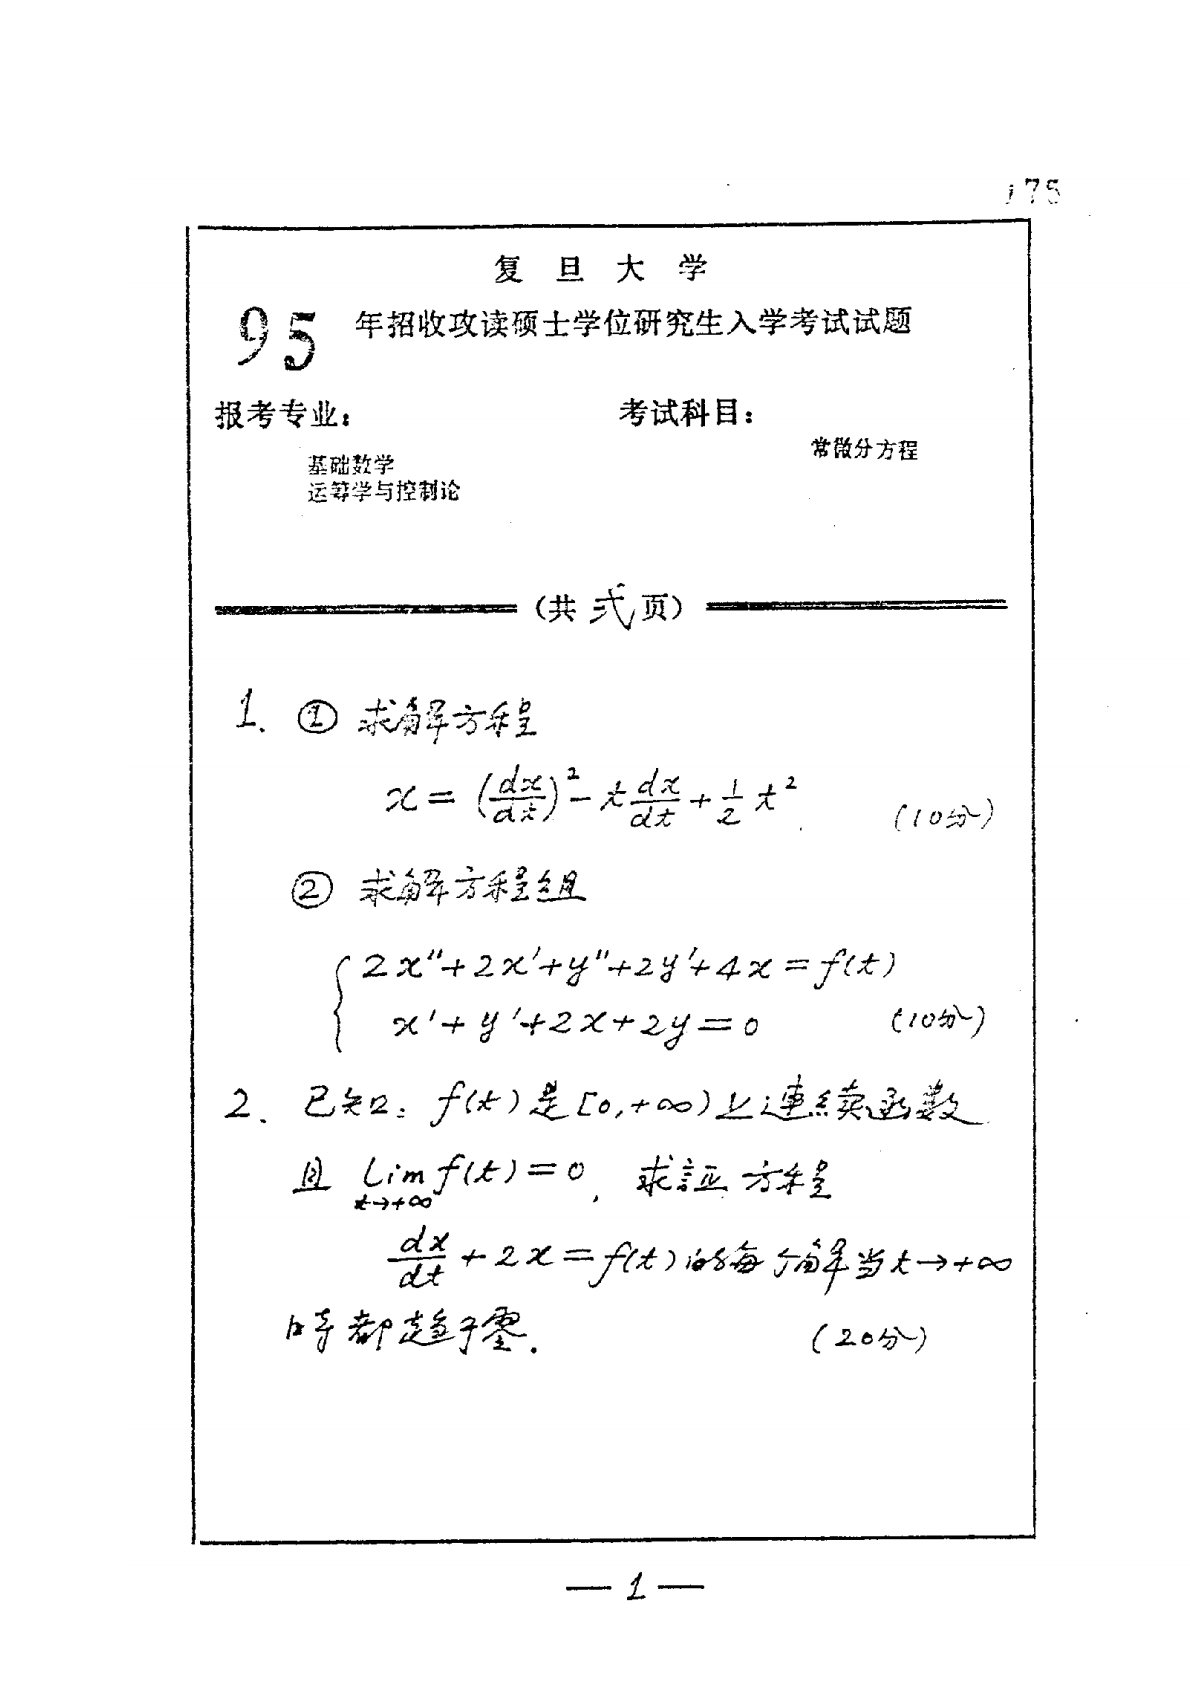 175
复旦大学
95 年招收攻读硕士学位研究生入学考试试题
报考专业: 考试科目:
常微分方程
基础数学
运筹学与控制论
(共 弍 页)
1. ① 求解方程
x = (dx/dt)² - t dx/dt + 1/2 t² (10分)
② 求解方程组
{ 2x″+2x′+y″+2y′+4x = f(t)
x′+y′+2x+2y = 0 (10分)
2. 已知: f(t) 是 [0,+∞) 上連續函数
且 Lim t→+∞ f(t) = 0, 求証 方程
dx/dt + 2x = f(t) 的每个解当 t→+∞
时都趋于零. (20分)
— 1 —